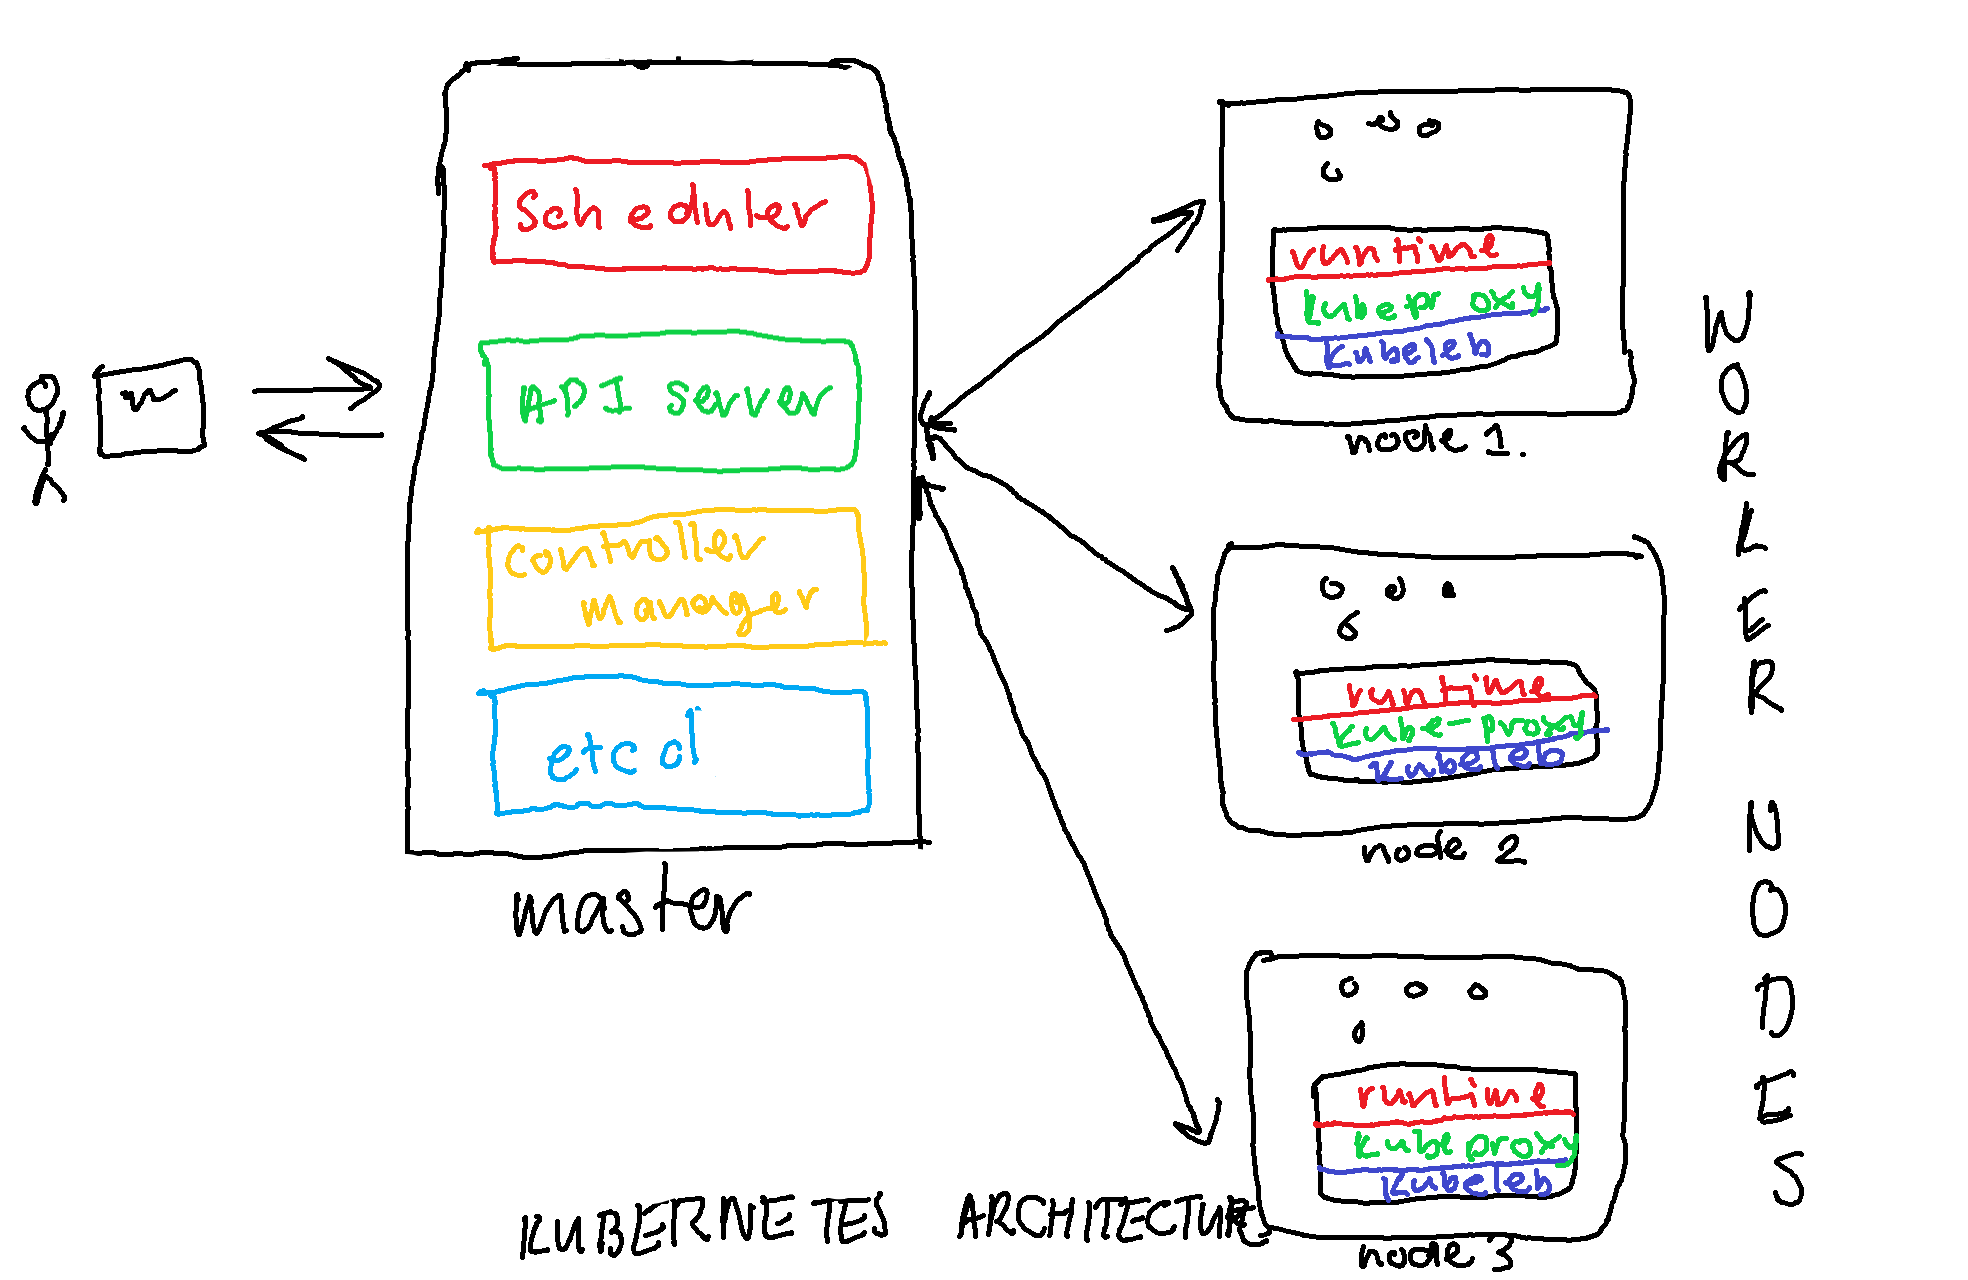 Scheduler
API server
controller
manager
etcd
master
runtime
kubeproxy
kubeleb
node 1.
runtime
kube-proxy
kubeleb
node 2
runtime
kubeproxy
kubeleb
node 3
WORLER NODES
KUBERNETES ARCHITECTURE